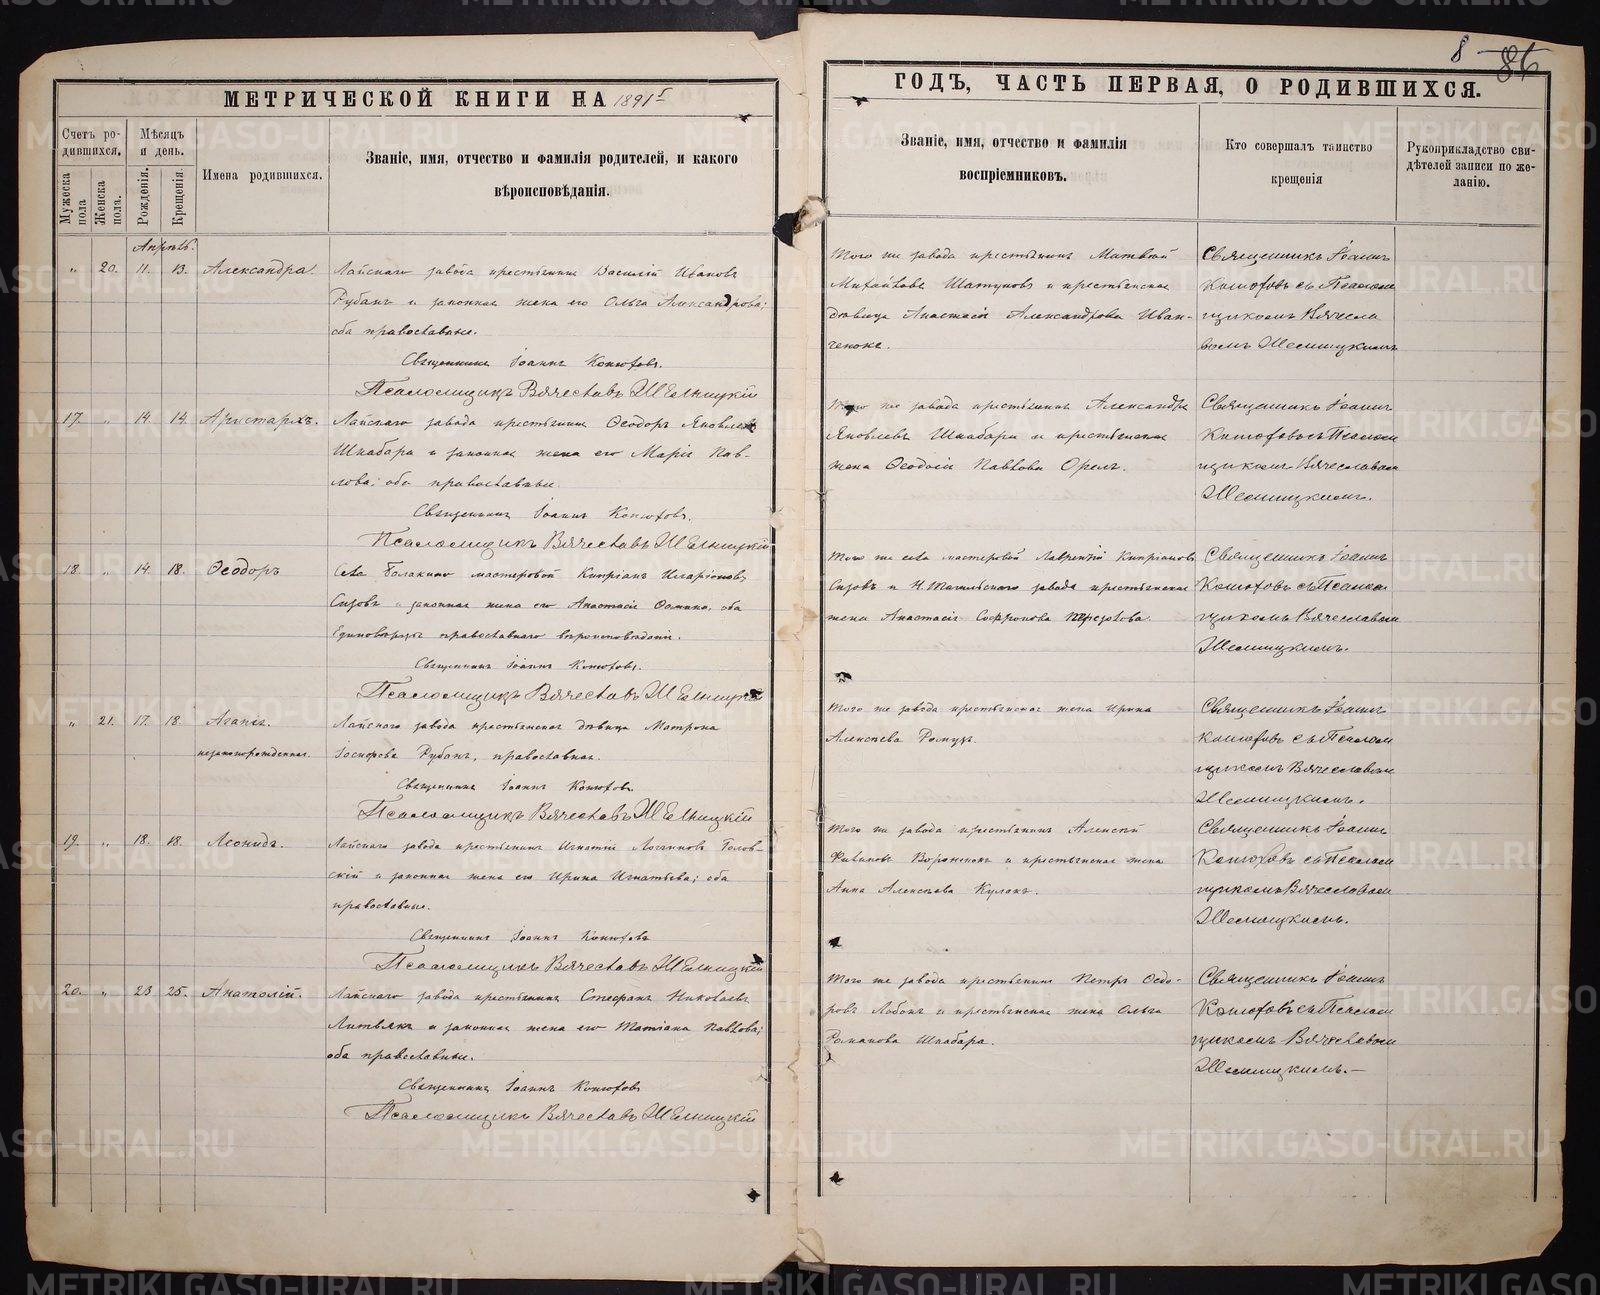 8 86
МЕТРИЧЕСКОЙ КНИГИ НА 1891 г
Счетъ ро-
дившихся.
Мѣсяцъ
и день.
Мужеска
пола
Женска
пола.
Рожденія.
Крещенія.
Имена родившихся.
Званіе, имя, отчество и фамилія родителей, и какого
вѣроисповѣданія.
Апрѣль.
„ 20. 11. 13. Александра. Лайскаго завода крестьянинъ Василій Ивановъ
Рубанъ и законная жена его Ольга Александрова;
оба православные.
Священникъ Іоаннъ Конюховъ.
Псаломщикъ Вячеславъ
17. „ 14. 14. Аристархъ. Лайскаго завода крестьянинъ Ѳеодоръ Яковлевъ
Шкабара и законная жена его Марія Пав-
лова; оба православные.
Священникъ Іоаннъ Конюховъ.
Псаломщикъ Вячеславъ
18. „ 14. 18. Ѳеодоръ Села Балакино мастеровой Кипріанъ Иларіоновъ
Сизовъ и законная жена его Анастасія Ѳомина, оба
Единовѣрцы православнаго вѣроисповѣданія.
Священникъ Іоаннъ Конюховъ.
Псаломщикъ Вячеславъ
„ 21. 17. 18. Агапія. Лайскаго завода крестьянская дѣвица Матрона
незаконнорожденная. Іосифова Рубанъ, православная.
Священникъ Іоаннъ Конюховъ.
Псаломщикъ Вячеславъ
19. „ 18. 18. Леонидъ. Лайскаго завода крестьянинъ Игнатій Логгиновъ Голов-
скій и законная жена его Ирина Игнатьева; оба
православные.
Священникъ Іоаннъ Конюховъ
Псаломщикъ Вячеславъ
20. „ 23 25. Анатолій. Лайскаго завода крестьянинъ Стефанъ Николаевъ
Литвякъ и законная жена его Татіана Павлова;
оба православные.
Священникъ Іоаннъ Конюховъ
Псаломщикъ Вячеславъ
ГОДЪ, ЧАСТЬ ПЕРВАЯ, О РОДИВШИХСЯ.
Званіе, имя, отчество и фамилія
воспріемниковъ.
Кто совершалъ таинство
крещенія
Рукоприкладство сви-
дѣтелей записи по же-
ланію.
Того же завода крестьянинъ Матвѣй
Михайловъ Шатуновъ и крестьянская
дѣвица Анастасія Александрова Иван-
ченкова.
Священникъ Іоаннъ
Конюховъ съ Псалом
щикомъ Вячесла
вомъ
Того же завода крестьянинъ Александръ
Яковлевъ Шкабара и крестьянская
жена Ѳеодосія Павлова Орелъ.
Священникъ Іоаннъ
Конюховъ съ Псалом
щикомъ Вячеславом
Того же села мастеровой Лаврентій Кипріановъ
Сизовъ и Н. Тагильскаго завода крестьянская
жена Анастасія Софронова
Священникъ Іоаннъ
Конюховъ съ Псалом
щикомъ Вячеславом
Того же завода крестьянская жена Ирина
Алексѣева
Священникъ Іоаннъ
Конюховъ съ Псалом
щикомъ Вячеславом
Того же завода крестьянинъ Алексѣй
Воронежск и крестьянская жена
Анна Алексѣева Кулакъ.
Священникъ Іоаннъ
Конюховъ съ Псалом
щикомъ Вячеславом
Того же завода крестьянинъ Петръ Ѳедо-
ровъ Лобокъ и крестьянская жена Ольга
Романова Шкабара.
Священникъ Іоаннъ
Конюховъ съ Псалом
щикомъ Вячеславом
METRIKI.GASO-URAL.RU